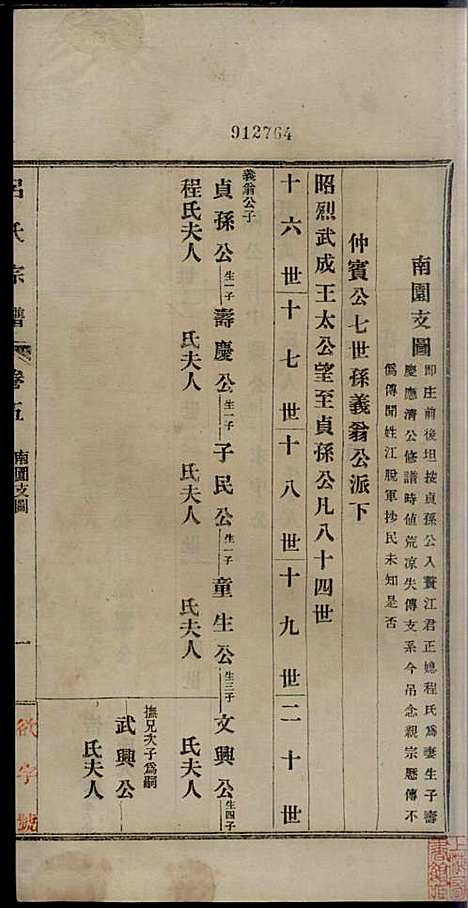 912764
南園支圖
即庄前後坦按貞孫公入贅江君正媳程氏為妻生子壽
慶應清公修譜時值荒凉失傳支系今吊念親宗歷傳不
僞傳聞姓江脫軍抄民未知是否
仲賓公七世孫義翁公派下
昭烈武成王太公望至貞孫公凡八十四世
十六世 十七世 十八世 十九世 二十世
義翁公子
貞孫公 生一子 壽慶公 生二子 子民公 生一子 童生公 生三子 文興公 生四子
程氏夫人 氏夫人 氏夫人 氏夫人 氏夫人
撫兄次子為嗣
武興公
氏夫人
呂氏宗譜 卷五 南園支圖 一
欲字號